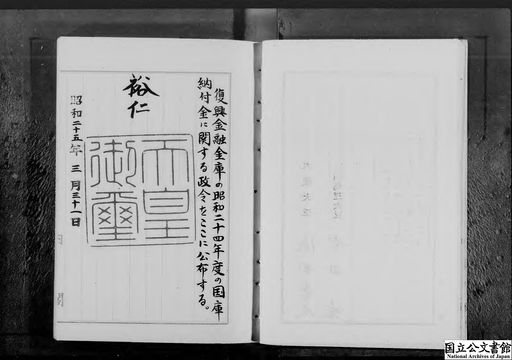 復興金融金庫の昭和二十四年度の国庫
納付金に関する政令をここに公布する。
裕仁
天皇
御璽
昭和二十五年三月三十一日
国立公文書館
National Archives of Japan